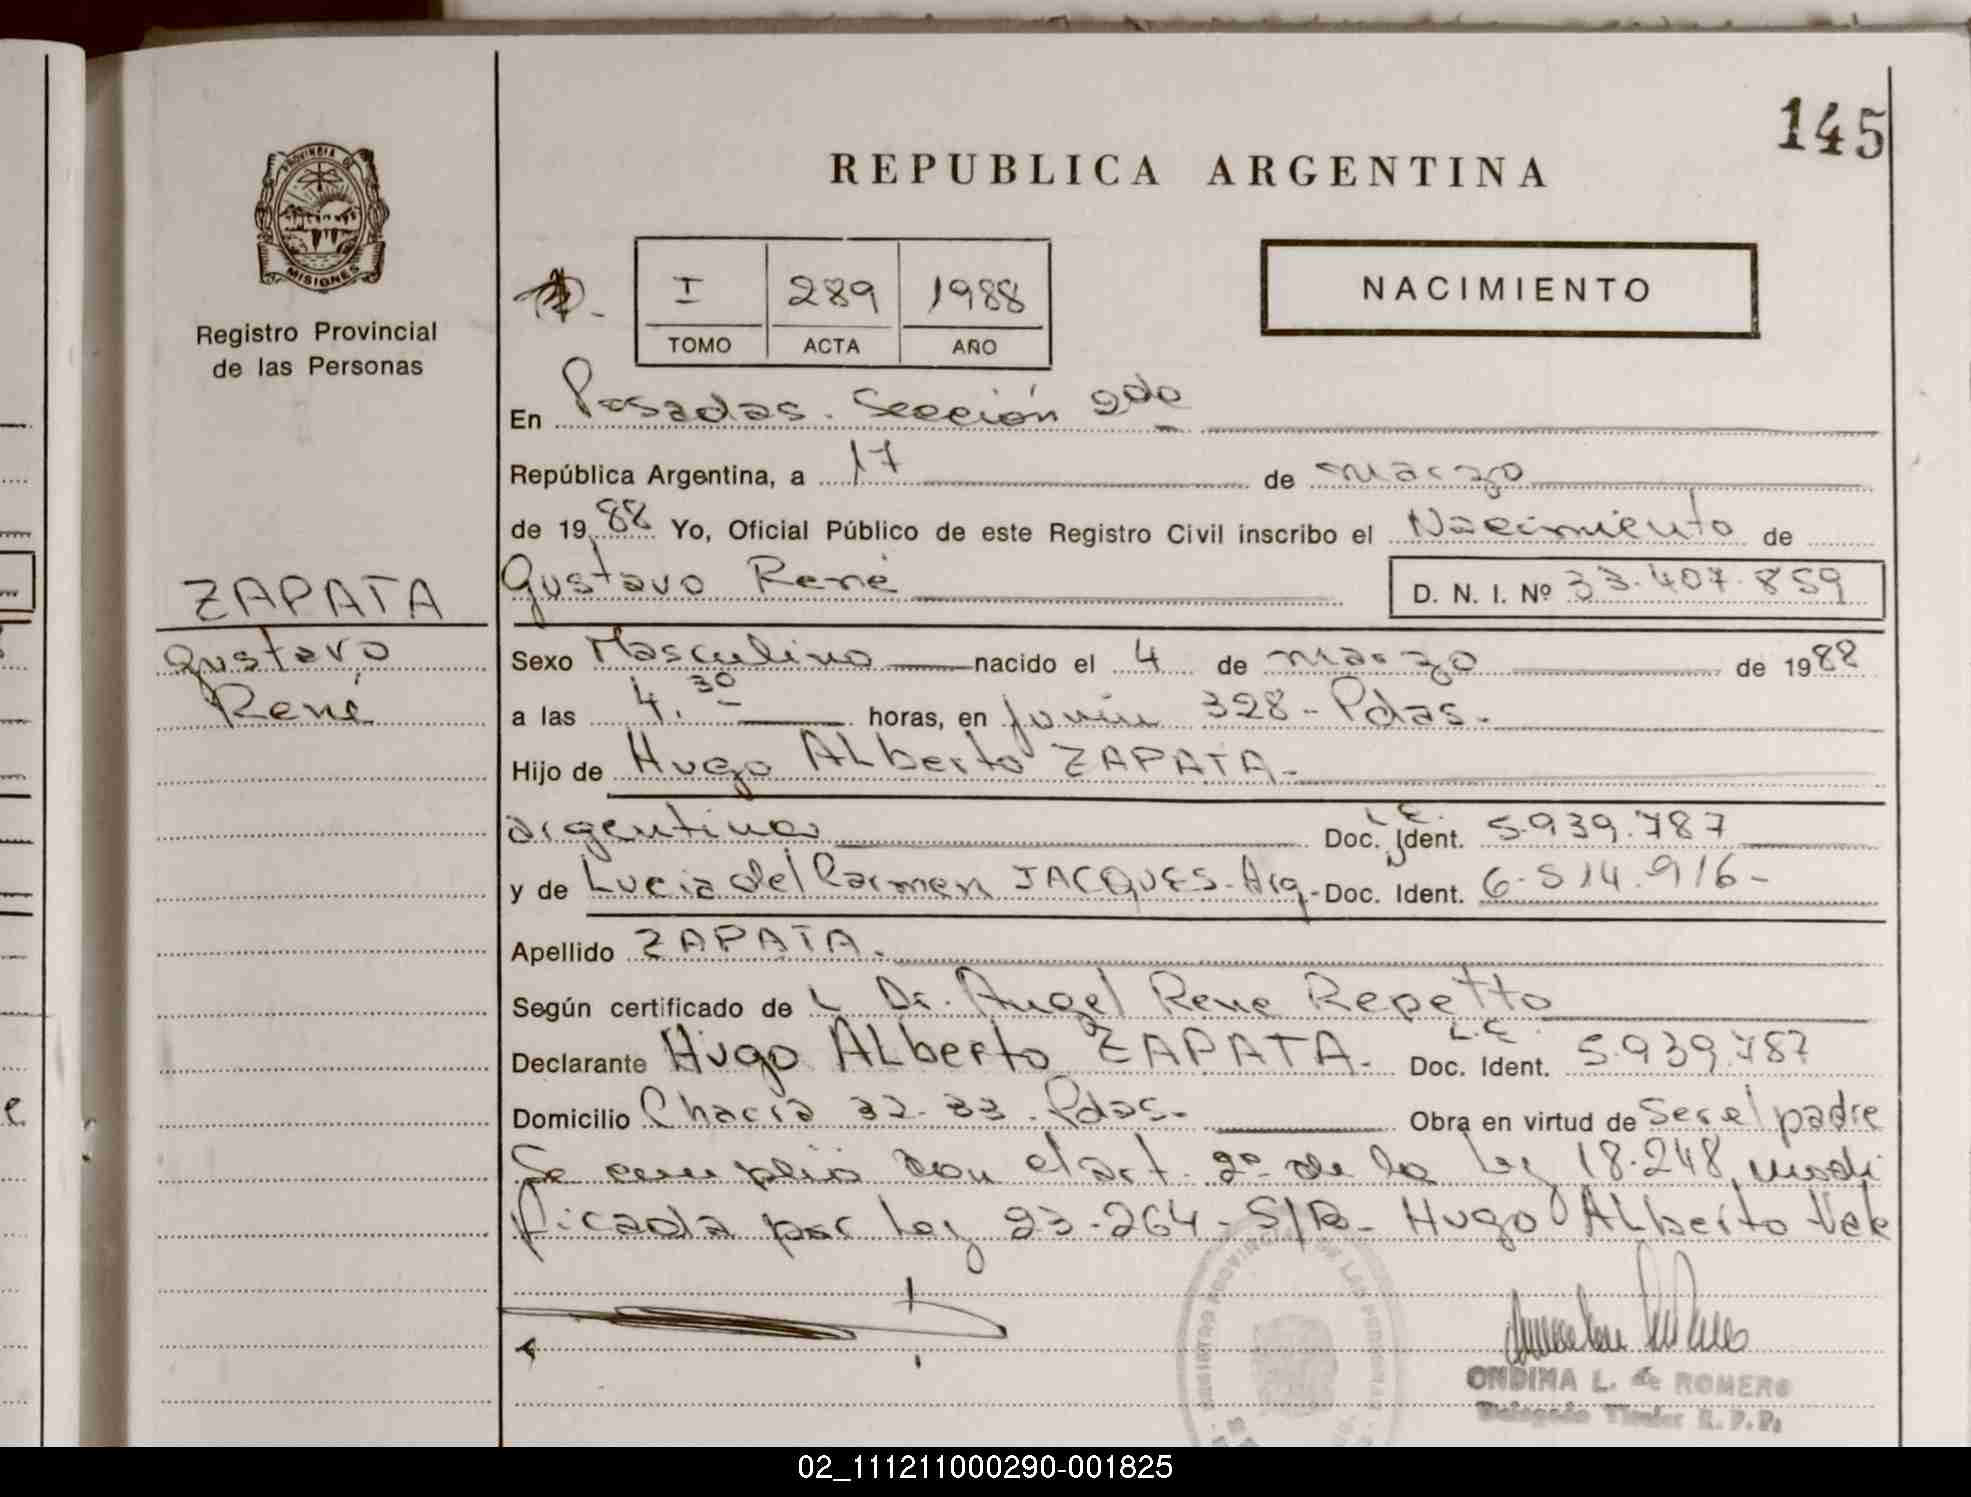 145
REPUBLICA ARGENTINA
PROVINCIA DE
MISIONES
Registro Provincial
de las Personas
NACIMIENTO
I 289 1988
TOMO ACTA AÑO
En Posadas. Sección 2da
República Argentina, a 17 de marzo
de 1988 Yo, Oficial Público de este Registro Civil inscribo el Nacimiento de
Gustavo René D. N. I. Nº 33.407.859
ZAPATA
Gustavo
René
Sexo Masculino nacido el 4 de marzo de 1988
a las 4.30 horas, en Junín 328 - Pdas.
Hijo de Hugo ALberto ZAPATA-
argentino Doc. Ident. L.E. 5.939.787
y de Lucia del Carmen JACQUES - Arg - Doc. Ident. 6.514.916-
Apellido ZAPATA.
Según certificado de L Dr. Angel Rene Repetto
Declarante Hugo ALberto ZAPATA. Doc. Ident. L.E. 5.939.787
Domicilio Chacra 32-33. Pdas. Obra en virtud de ser el padre
Se cumplió con el art. 2º de la ley 18.248, modi
ficada por ley 23.264 - S/R - Hugo ALberto Vale
REGISTRO PROVINCIAL DE LAS PERSONAS
ONDINA L. de ROMERO
Delegado Titular R. P. P.
02_111211000290-001825